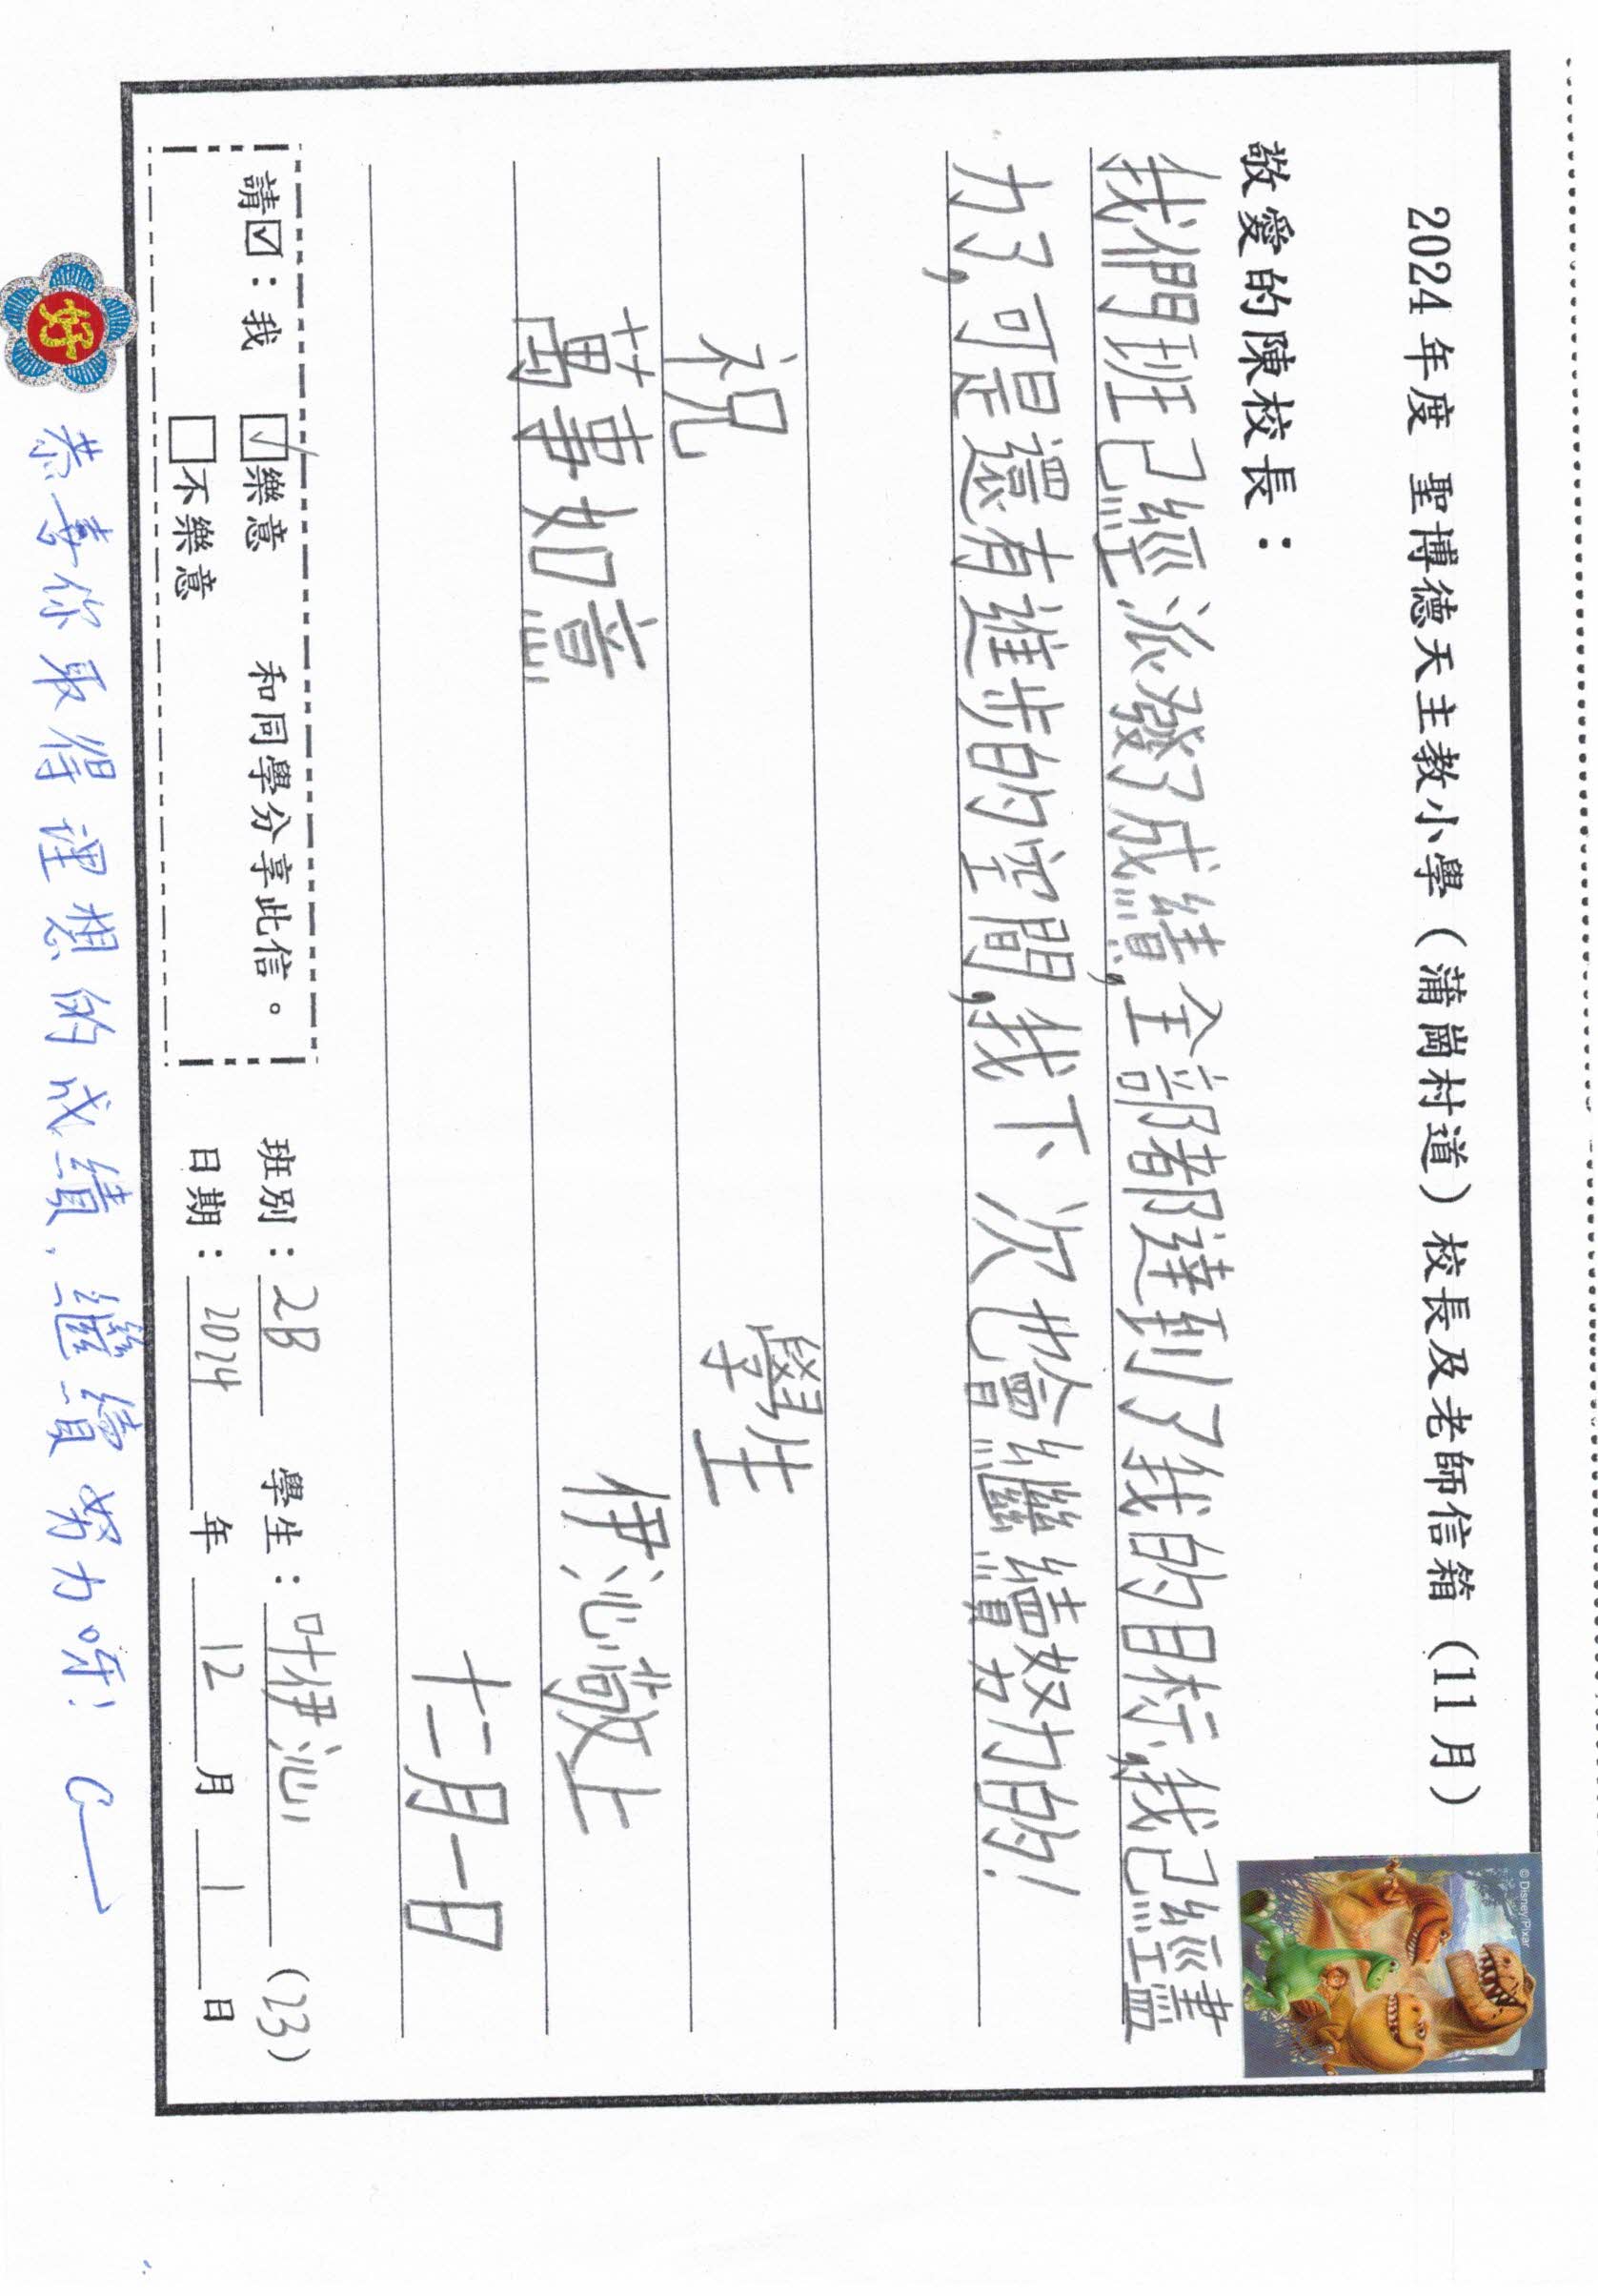 2024年度 聖博德天主教小學（蒲崗村道）校長及老師信箱（11月）
© Disney/Pixar
敬愛的陳校長：
我們班已經派發了成績,全部都達到了我的目标,我已經盡
力了,可是還有進步的空間,我下次也會繼續努力的！
學生
祝
伊沁敬上
萬事如意
十二月一日
請☑：我 ☑樂意 和同學分享此信。
□不樂意
班別：2B 學生：叶伊沁 (23)
日期：2024年12月1日
好
恭喜你取得理想的成績，繼續努力呀！